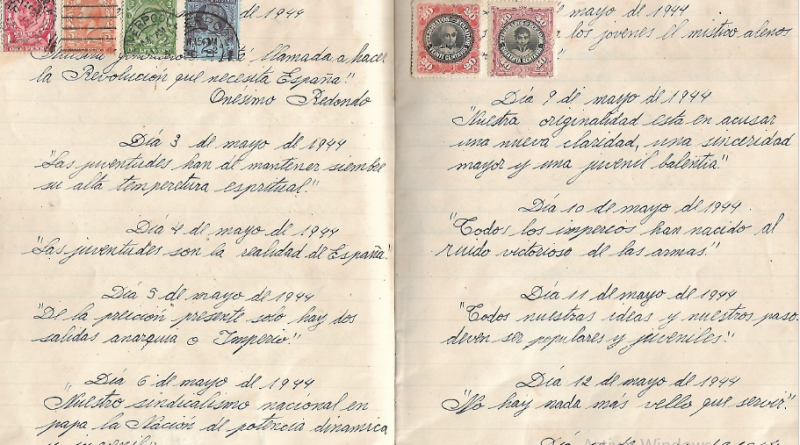 de 1944
llamada a hacer
la Revolución que necesita España."
Onésimo Redondo
Día 3 de mayo de 1944
"Las juventudes han de mantener siembre
su alta temperetura espritual."
Día 4 de mayo de 1944
"Las juventudes son la realidad de España"
Día 5 de mayo de 1944
"De la preición presente solo hay dos
salidas anarquia o Imperio."
Día 6 de mayo de 1944
"Nuestro sindicalismo nacional en
papa la Nación de potencia dinamica
mayo de 1944
los jovenes el mistico
Día 9 de mayo de 1944
"Nuestra originalidad está en acusar
una nueva claridad, una sinceridad
mayor y una juvenil balentia."
Día 10 de mayo de 1944
"Todos los impereos han nacido al
ruido victorioso de las armas."
Día 11 de mayo de 1944
"Todos nuestras ideas y nuestros paso
deven ser populares y juveniles."
Día 12 de mayo de 1944
"No hay nada más vello que servir."
20 20